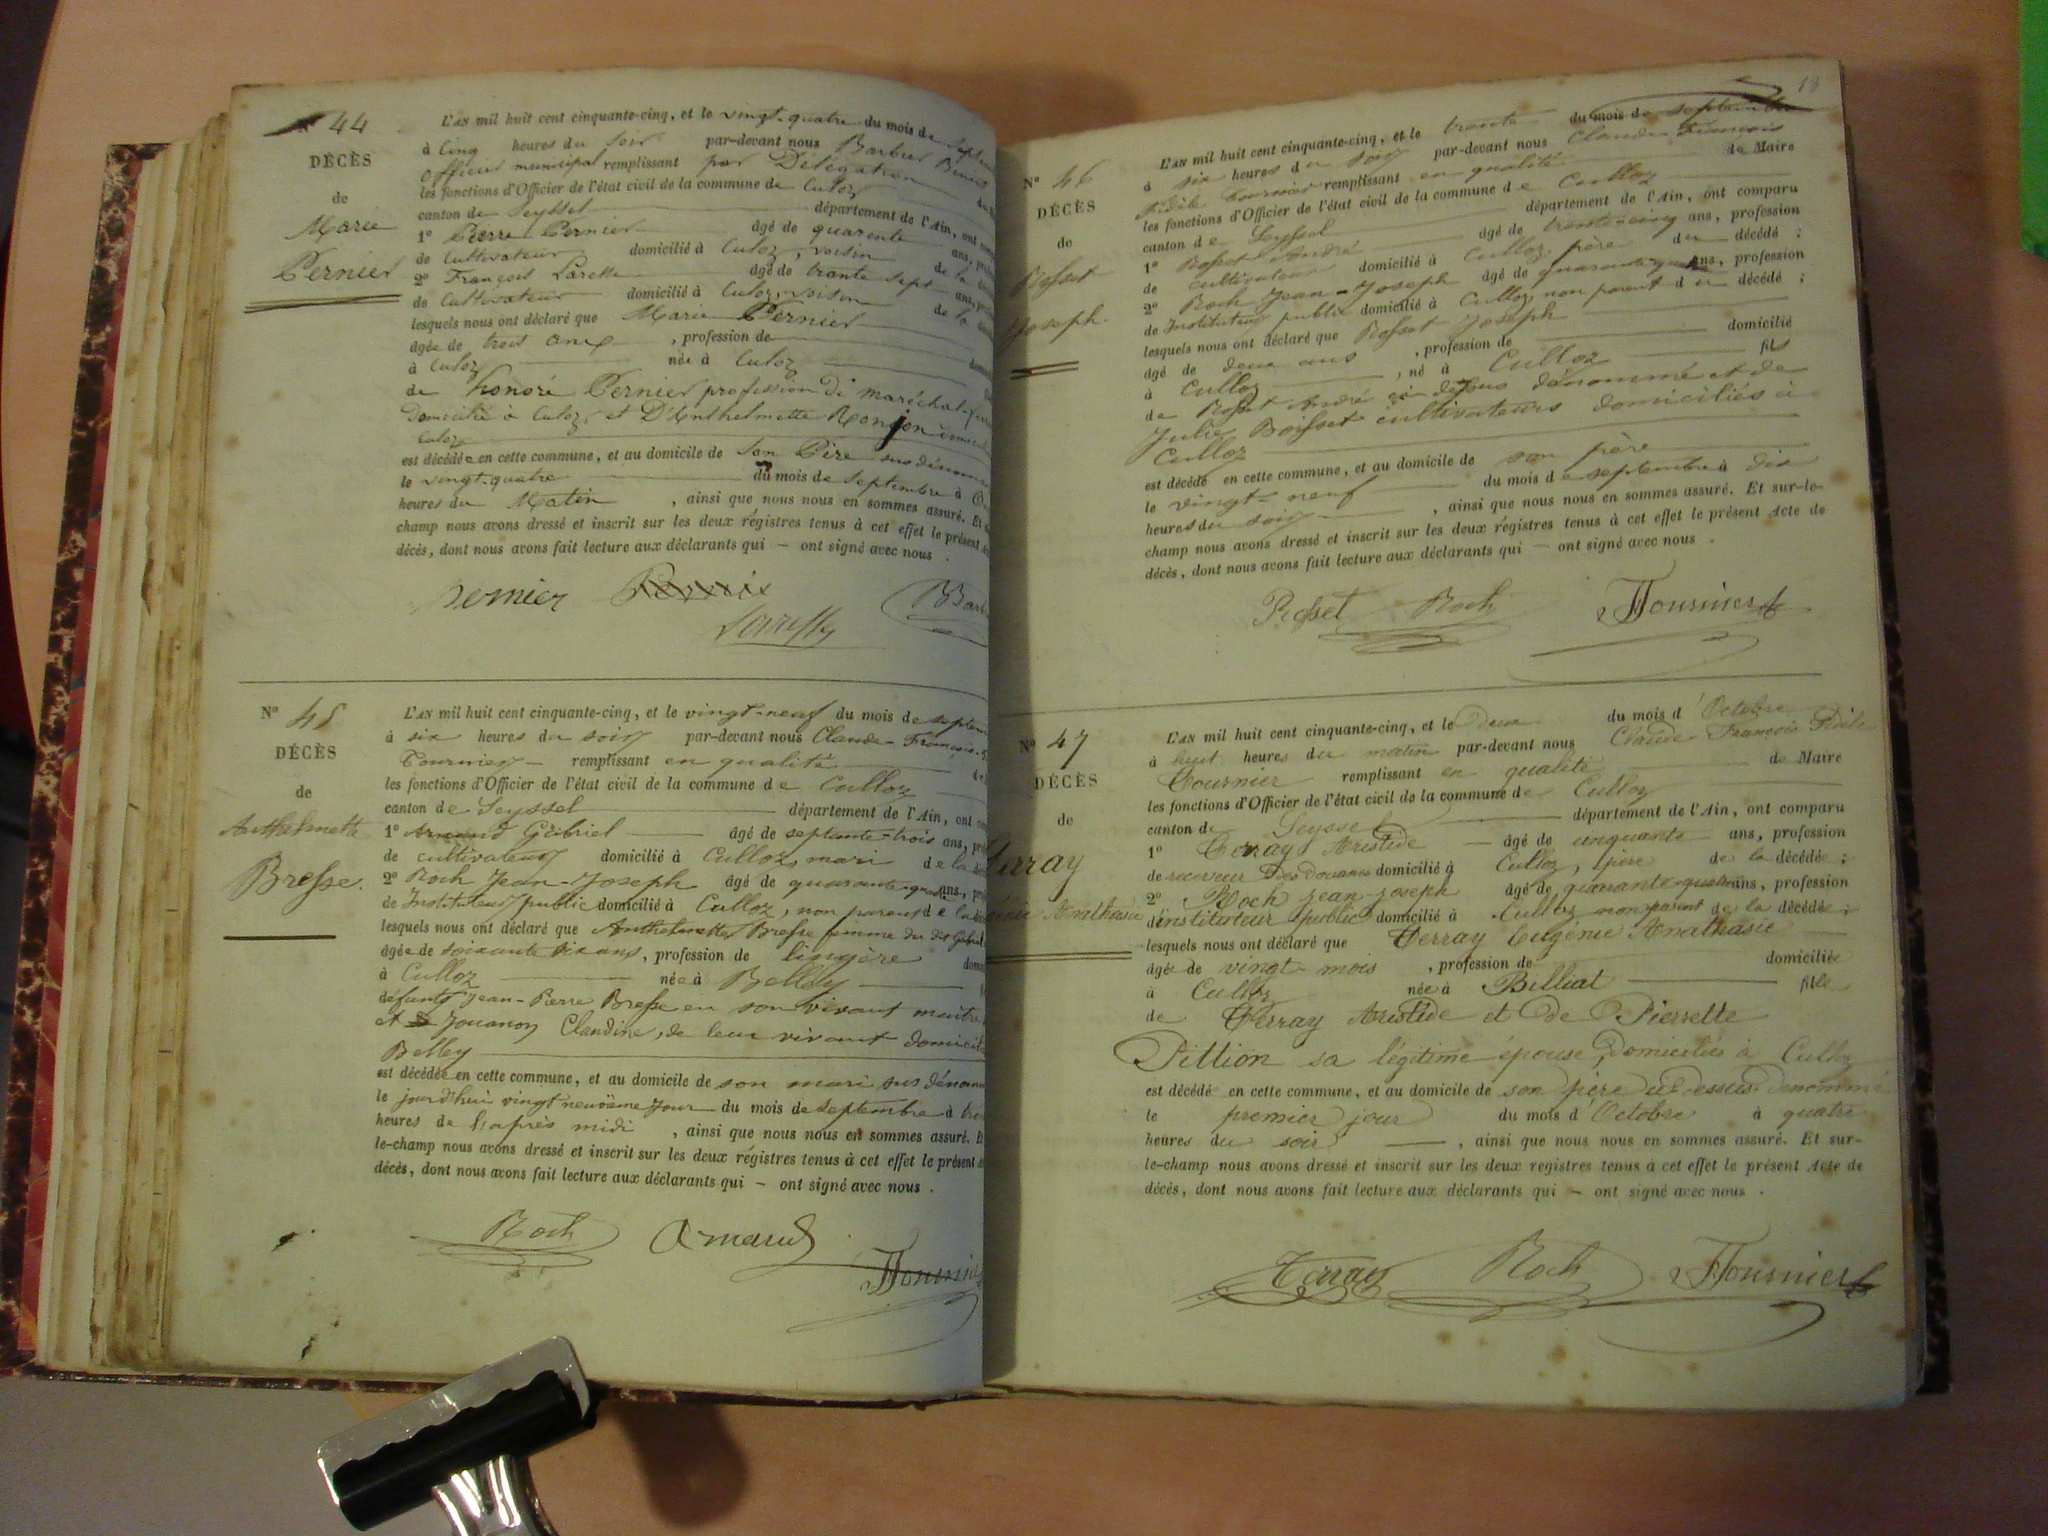 44
DÉCÈS
de
Marie
Pernier
L'AN mil huit cent cinquante-cinq, et le vingt-quatre du mois de
à Cinq heures du Soir par-devant nous Barbier
officier municipal remplissant par Délégation
les fonctions d'Officier de l'état civil de la commune de Culoz
canton de Seyssel département de l'Ain, ont
1° Pierre Pernier âgé de quarente ans,
de Cultivateur domicilié à Culoz, voisin de la
2° François Larette âgé de trante sept ans,
de Cultivateur domicilié à Culoz, voisin de la
lesquels nous ont déclaré que Marie Pernier
âgée de trois ans , profession de
à Culoz née à Culoz
de honoré Pernier profession de maréchal
Domicilié à Culoz, et D'Anthelmette Monjon
Culoz
est décédée en cette commune, et au domicile de Son Père sus
le vingt-quatre du mois de Septembre à
heures du Matin , ainsi que nous nous en sommes assuré. Et
champ nous avons dressé et inscrit sur les deux régistres tenus à cet effet le présent
décès, dont nous avons fait lecture aux déclarants qui — ont signé avec nous .
Pernier
N° 45
DÉCÈS
de
Anthelmette
Bresse.
L'AN mil huit cent cinquante-cinq, et le vingt-neuf du mois de
à six heures du soir par-devant nous Claude-François
Tournier — remplissant en qualité
les fonctions d'Officier de l'état civil de la commune de Culloz
canton de Seyssel département de l'Ain, ont
1° Armand Gabriel âgé de septante-trois ans,
de cultivateur domicilié à Culloz, mari de la
2° Roch Jean-Joseph âgé de quarante-quatre ans,
de Instituteur public domicilié à Culloz, non parent de la
lesquels nous ont déclaré que Anthelmette Bresse femme du dit
âgée de soixante six ans, profession de lingère
à Culloz née à Belley
défunts Jean-Pierre Bresse en son vivant
et Jouanon Claudine, de leur vivant
Belley
est décédée en cette commune, et au domicile de son mari sus
le jourd'hui vingt neuvième jour du mois de septembre à
heures de l'après midi , ainsi que nous nous en sommes assuré. Et
le-champ nous avons dressé et inscrit sur les deux régistres tenus à cet effet le présent
décès, dont nous avons fait lecture aux déclarants qui — ont signé avec nous .
Roch Armand
Tournier
18
N° 46
DÉCÈS
de
Rosset
Joseph.
L'AN mil huit cent cinquante-cinq, et le trente du mois de septembre
à six heures du soir par-devant nous Claude François
Fidèle Tournier remplissant en qualité de Maire
les fonctions d'Officier de l'état civil de la commune de Culloz
canton de Seyssel département de l'Ain, ont comparu
1° Rosset André âgé de trente-cinq ans, profession
de cultivateur domicilié à Culloz, père du décédé ;
2° Roch Jean-Joseph âgé de quarante-quatre ans, profession
de Instituteur public domicilié à Culloz, non parent du décédé ;
lesquels nous ont déclaré que Rosset Joseph
âgé de deux ans , profession de domicilié
à Culloz , né à Culloz fils
de Rosset André ci-dessus dénommé et de
Julie Boisset cultivateurs domiciliés à
Culloz
est décédé en cette commune, et au domicile de son père
le vingt-neuf du mois de septembre à dix
heures du soir , ainsi que nous nous en sommes assuré. Et sur-le-
champ nous avons dressé et inscrit sur les deux régistres tenus à cet effet le présent Acte de
décès, dont nous avons fait lecture aux déclarants qui — ont signé avec nous .
Rosset Roch Tournier
N° 47
DÉCÈS
de
Terray
Anathasie
L'AN mil huit cent cinquante-cinq, et le Deux du mois d'Octobre
à huit heures du matin par-devant nous Claude François Fidèle
Tournier remplissant en qualité de Maire
les fonctions d'Officier de l'état civil de la commune de Culloz
canton de Seyssel département de l'Ain, ont comparu
1° Terray Aristide — âgé de cinquante ans, profession
de receveur des Douanes domicilié à Culloz, père de la décédée ;
2° Roch jean-joseph âgé de quarante-quatre ans, profession
d'instituteur public domicilié à Culloz non parent de la décédée ;
lesquels nous ont déclaré que Terray Eugénie Anathasie
âgée de vingt mois , profession de domiciliée
à Culloz née à Billiat fille
de Terray Aristide et de Pierrette
Pillion sa légitime épouse, domiciliés à Culloz
est décédé en cette commune, et au domicile de son père ci dessus dénommé
le premier jour du mois d'Octobre à quatre
heures du soir , ainsi que nous nous en sommes assuré. Et sur-
le-champ nous avons dressé et inscrit sur les deux registres tenus à cet effet le présent Acte de
décès, dont nous avons fait lecture aux déclarants qui — ont signé avec nous .
Terray Roch Tournier